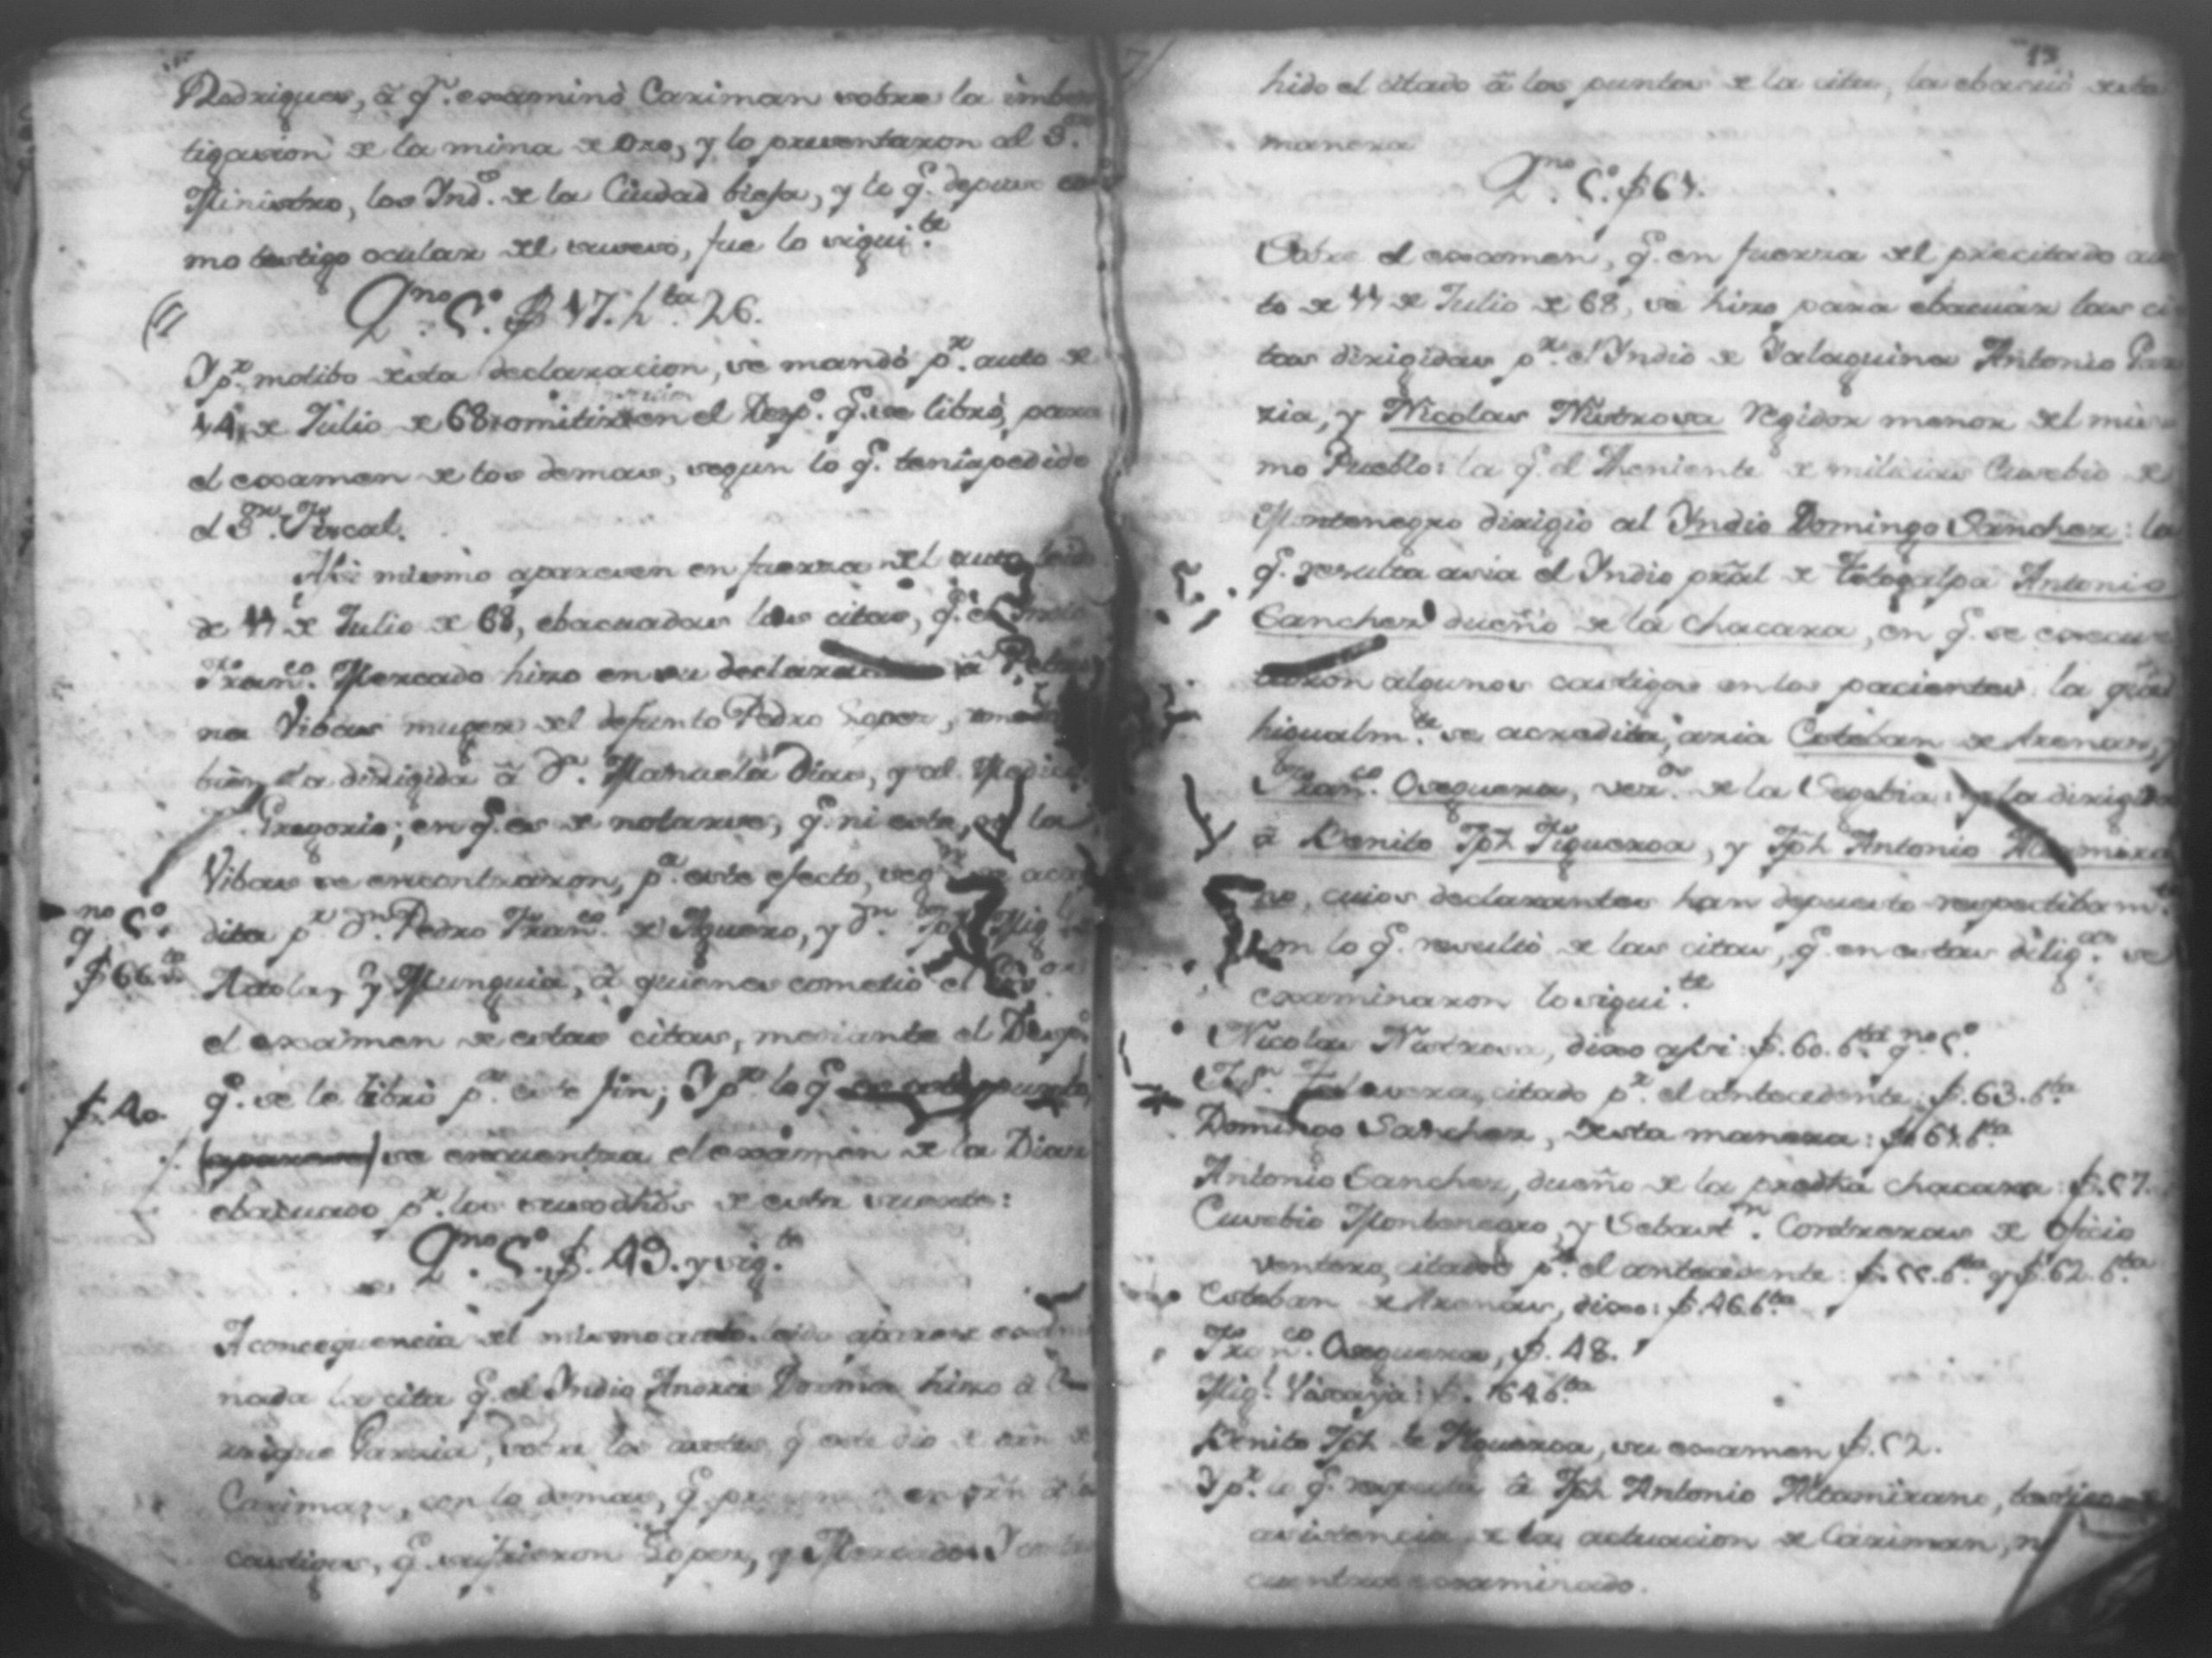 Rodriguez, â q.^n examinò Cariman sobre la imbes
tigasion de la mina de Oro, y lo presentaron al S.^or
Ministro, los Ynd.^s de la Ciudad bieja, y lo q.^e depuso co
mo testigo ocular del suseso, fue lo sigui.^te
Q.^no 5.° f 17. h.^ta 26.
Y p.^r motibo desta declaracion, se mandò p.^r auto de
11, de Julio de 68 omitir en el Desp.° q.^e se librò, para
el examen de los demas, segun lo q.^e tenia pedido
el S.^or Fiscal.
Asi mismo aparesen en fuerza del auto
de 11 de Julio de 68, ebacuadas las citas, q.^e el Yndio
Fran.^co Mercado hizo en su â Petro
na Vibas muger del defunto Pedro Lopez,
bien la dirigida â D.^a Manuela Dias, y al Medico
D.^n Gregorio; en q.^e es de notarse, q.^e ni este, la
Vibas se encontraron, p.^a este efecto, seg.^n se acre
dita p.^r D.^n Pedro Fran.^co de Aguero, y D.^n Mig.^l
Actola, y Munguia, â quienes cometiò el
q.^no 5.°
f 66 b.^ta
el examen de estas citas, mediante el Desp.°
q.^e se le librò p.^a este fin; Y p.^r lo q.^e
f. 40.
se encuentra el examen de la Dias
ebacuado p.^r los de esta suerte:
Q.^no 5.° f. 49. y sig.^te
A concequencia del mismo auto aparese exami
nada la cita q.^e el Yndio hizo â En
rrique Garzia, sobre los azotes q.^e este dio de orn de
Cariman, con lo demas, q.^e
castigos, q.^e sufrieron Lopez, y Mercado. Y
13
hido el citado â los puntos de la cita, la ebacuò desta
manera
Q.^no 5.° f 67.
Obra el examen, q.^e en fuerza del precitado au
to de 11 de Julio de 68, se hizo para ebacuar las ci
tas dirigidas p.^r el Yndio de Yalaguina Antonio Gar
zia, y Nicolas Nistrosa Regidor menor del mis
mo Pueblo: la q.^e el Theniente de milicias Eusebio de
Montenegro dirigio al Yndio Domingo Sanchez: la
q.^e resulta asia el Yndio prãl de Totogalpa Antonio
Sanchez dueño de la chacara, en q.^e se execu
taron algunos castigos en los pacientes: la qûal
higualm.^te se acredita, asia Esteban de Arenas, y
Fran.^co Oseguera, vez.^os de la Segobia: y la dirigida
â Benito Jph Figueroa, y Jph Antonio Altamira
no, cuios declarantes han depuesto respectibam.^te
en lo q.^e resultò de las citas, q.^e en estas dilig.^as se
examinaron lo sigui.^te
Nicolas Nistrosa, dixo asi: f. 60. b.^ta q.^no 5.°
Talavera, citado p.^r el antecedente: f. 63. b.^ta
Domingo Sanchez, desta manera: f. 61. b.^ta
Antonio Sanchez, dueño de la predha chacara: f. 57.
Eusebio Montenegro, y Sebast.^n Contreras de oficio
ventero, citado p.^r el antecedente: f. 55. b.^ta y f. 62. b.^ta
Esteban de Arenas, dixo: f. 46. b.^ta
Fran.^co Oseguera, f. 48.
Mig.^l Viscaya: f. 64. b.^ta
Benito Jph de Figueroa, su examen f. 52.
Y p.^r lo q.^e respecta â Jph Antonio Altamirano,
asistencia de la actuacion de Cariman,
cuentra examinado.